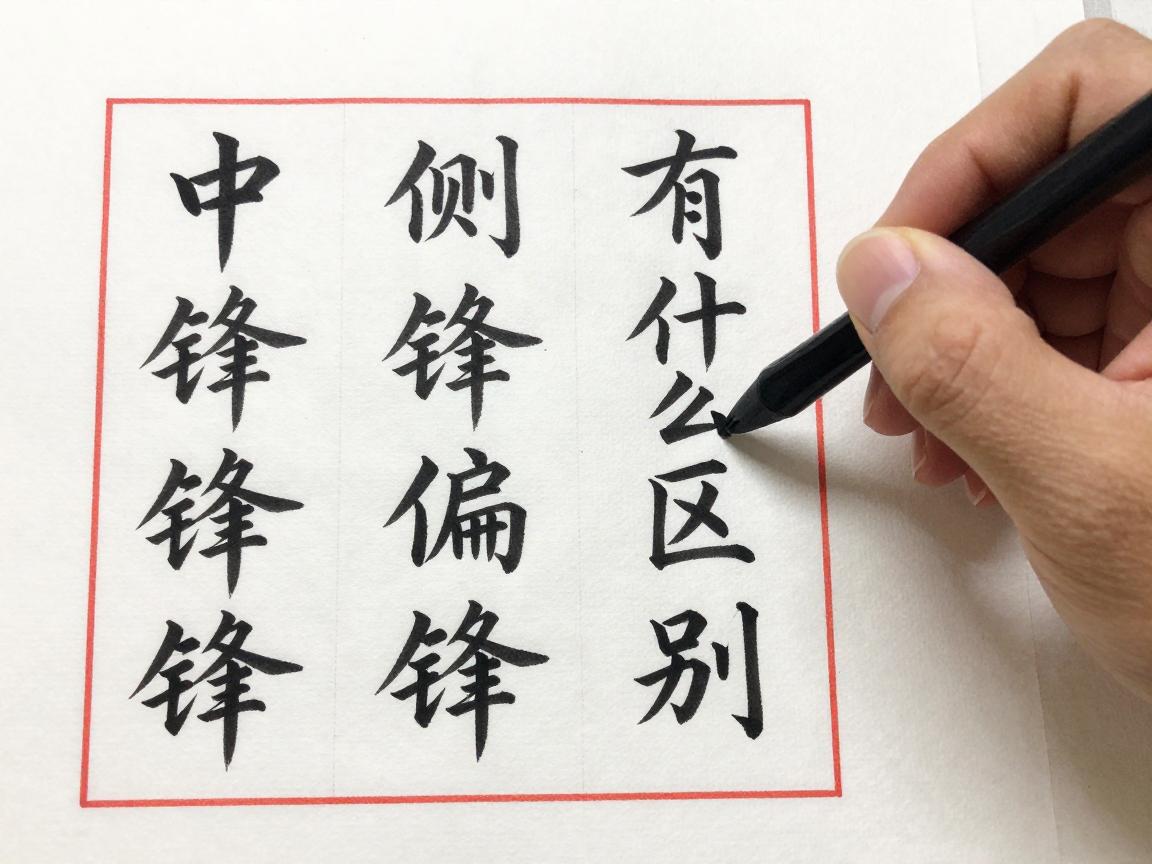 中锋锋锋
侧锋偏锋
有什么区别